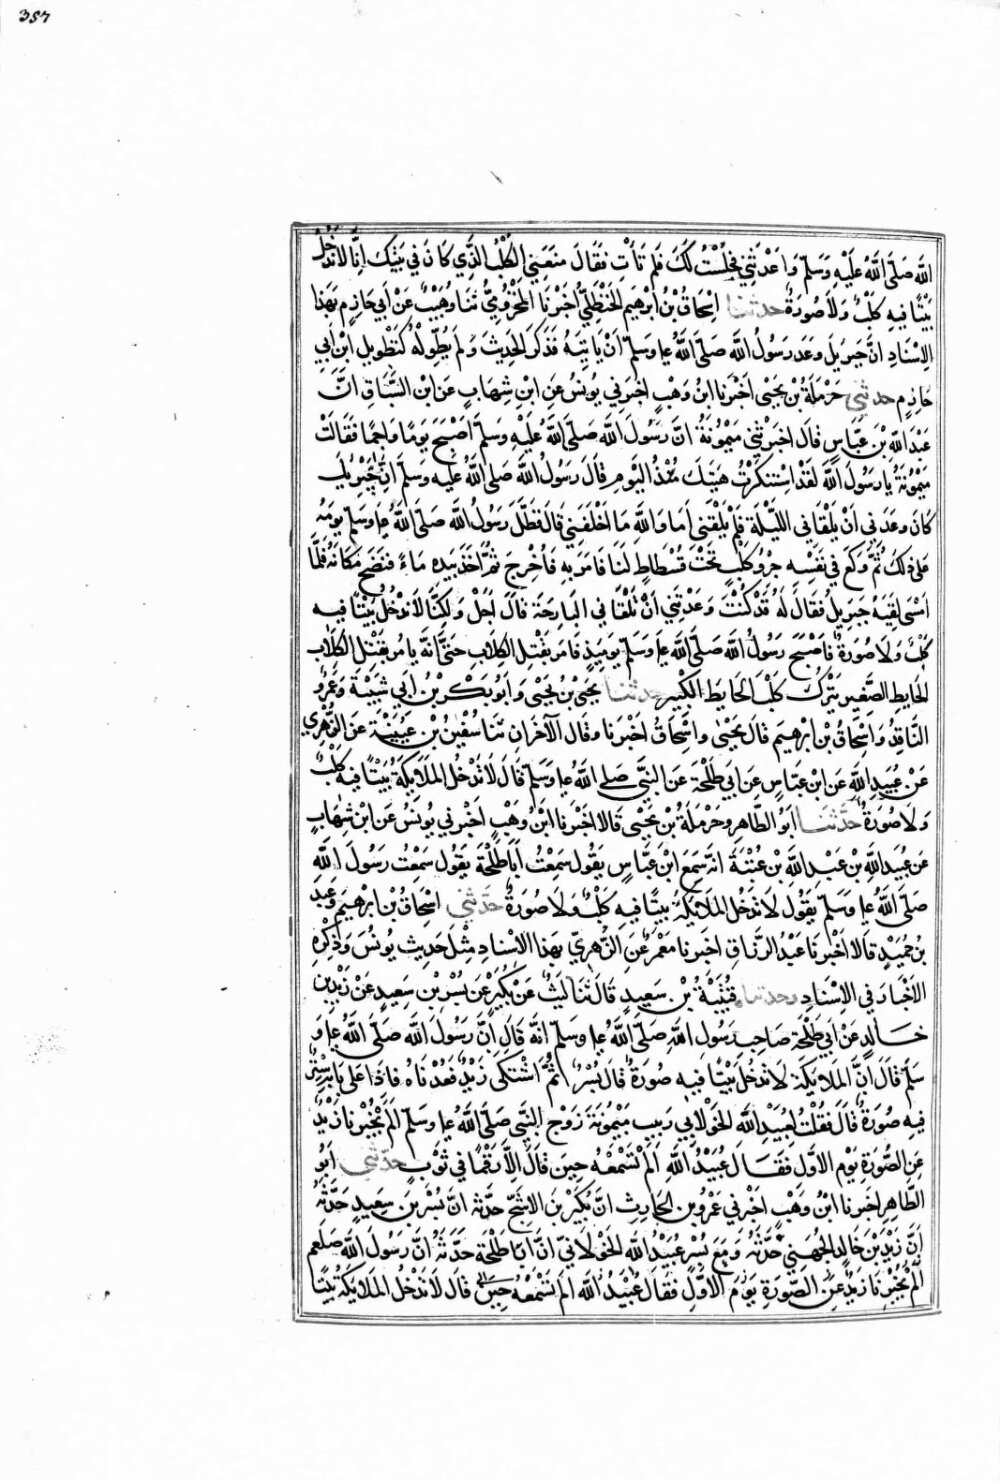 357
الله صَلَّى اللهُ عَلَيْهِ وَسَلَّمَ وَاعَدْتَنِي فَجَلَسْتُ لَكَ فَلَمْ تَأْتِ فَقَالَ مَنَعَنِي الكَلْبُ الَّذِي كَانَ فِي بَيْتِكَ إِنَّا لَا نَدْخُلُ
بَيْتًا فِيهِ كَلْبٌ وَلَا صُورَةٌ حدثنا اِسْحَاقُ بْنُ اِبْرٰهِيمَ الحَنْظَلِيُّ اَخْبَرَنَا المَخْزُومِيُّ ثَنَا وُهَيْبٌ عَنْ اَبِي حَازِمٍ بِهَذَا
الاِسْنَادِ اَنَّ جِبْرِيلَ وَعَدَ رَسُولَ الله صَلَّى اللهُ عليه وَسَلَّمَ اَنْ يَاتِيَهُ فَذَكَرَ الحَدِيثَ وَلَمْ يُطَوِّلْهُ كَتَطْوِيلِ ابْنِ اَبِي
حَازِمٍ حدثني حَرْمَلَةُ بْنُ يَحْيَى اَخْبَرَنَا ابْنُ وَهْبٍ اخْبَرَنِي يُونُسُ عَنِ ابْنِ شِهَابٍ عَنِ ابْنِ السَّبَّاقِ اَنَّ
عَبْدَ اللهِ بْنَ عَبَّاسٍ قَالَ اَخْبَرَتْنِي مَيْمُونَةُ اَنَّ رَسُولَ الله صَلَّى اللهُ عَلَيْهِ وَسَلَّمَ اَصْبَحَ يَوْمًا وَاجِمًا فَقَالَتْ
مَيْمُونَةُ يَا رَسُولَ اللهِ لَقَدْ اِسْتَنْكَرْتُ هَيْئَتَكَ مُنْذُ اليَوْمِ قَالَ رَسُولُ اللهِ صَلَّى اللهُ عليه وَسَلَّمَ اِنَّ جِبْرِيلَ
كَانَ وَعَدَنِي اَنْ يَلْقَانِي اللَّيْلَةَ فَلَمْ يَلْقَنِي اَمَا وَاللهِ مَا اَخْلَفَنِي قَالَ فَظَلَّ رَسُولُ الله صَلَّى اللهُ عليه وَسَلَّمَ يَوْمَهُ
عَلَى ذلِكَ ثُمَّ وَقَعَ فِي نَفْسِهِ جِرْوُ كَلْبٍ تَحْتَ فُسْطَاطٍ لَنَا فَامَرَ بِهِ فَاُخْرِجَ ثُمَّ اَخَذَ بِيَدِهِ مَاءً فَنَضَحَ مَكَانَهُ فَلَمَّا
اَمْسَى لَقِيَهُ جِبْرِيلُ فَقَالَ لَهُ قَدْ كُنْتَ وَعَدْتَنِي اَنْ تَلْقَانِي البَارِحَةَ قَالَ اَجَلْ وَلكِنَّا لَا نَدْخُلُ بَيْتًا فِيهِ
كَلْبٌ وَلَا صُورَةٌ فَاَصْبَحَ رَسُولُ الله صَلَّى اللهُ عليه وَسَلَّمَ يَوْمَئِذٍ فَامَرَ بِقَتْلِ الكِلَابِ حَتَّى اَنَّهُ يَامُرُ بِقَتْلِ الكِلَابِ
الحَايِطِ الصَّغِيرِ وَيَتْرُكُ كَلْبَ الحَايِطِ الكَبِيرِ حدثنا يَحْيَى بْنُ يَحْيَى وَاَبُو بَكْرِ بْنُ اَبِي شَيْبَةَ وَعَمْرُو
النَّاقِدُ وَاِسْحَاقُ بْنُ اِبْرٰهِيمَ قَالَ يَحْيَى وَاِسْحَاقُ اَخْبَرَنَا وَقَالَ الآخَرَانِ ثَنَا سُفْيٰنُ بْنُ عُيَيْنَةَ عَنِ الزُّهْرِي
عَنْ عُبَيْدِ اللهِ عَنِ ابْنِ عَبَّاسٍ عَنْ اَبِي طَلْحَةَ عَنِ النَّبِيِّ صَلَّى اللهُ عليه وَسَلَّمَ قَالَ لَا تَدْخُلُ المَلَايِكَةُ بَيْتًا فِيهِ كَلْبٌ
وَلَا صُورَةٌ حَدَّثَنَا اَبُو الطَّاهِرِ وَحَرْمَلَةُ بْنُ يَحْيَى قَالَا اَخْبَرَنَا ابْنُ وَهْبٍ اَخْبَرَنِي يُونُسُ عَنِ ابْنِ شِهَابٍ
عَنْ عُبَيْدِ اللهِ بْنِ عَبْدِ اللهِ بْنِ عُتْبَةَ اَنَّهُ سَمِعَ ابْنَ عَبَّاسٍ يَقُولُ سَمِعْتُ اَبَا طَلْحَةَ يَقُولُ سَمِعْتُ رَسُولَ اللهِ
صَلَّى اللهُ عليه وَسَلَّمَ يَقُولُ لَا تَدْخُلُ المَلَايِكَةُ بَيْتًا فِيهِ كَلْبٌ وَلَا صُورَةٌ حَدَّثَنِي اِسْحَاقُ بْنُ اِبْرٰهِيمَ وَعَبْدُ
بْنُ حُمَيْدٍ قَالَا اَخْبَرَنَا عَبْدُ الرَّزَّاقِ اَخْبَرَنَا مَعْمَرٌ عَنِ الزُّهْرِيِّ بِهَذَا الاِسْنَادِ مِثْلَ حَدِيثِ يُونُسَ وَذِكْرِهِ
الاَخْبَارَ فِي الاِسْنَادِ وحدثنا قُتَيْبَةُ بْنُ سَعِيدٍ قَالَ ثَنَا لَيْثٌ عَنْ بُكَيْرٍ عَنْ بُسْرِ بْنِ سَعِيدٍ عَنْ زَيْدِ بْنِ
خَالِدٍ عَنْ اَبِي طَلْحَةَ صَاحِبِ رَسُولِ اللهِ صَلَّى اللهُ عليه وَسَلَّمَ اَنَّهُ قَالَ اِنَّ رَسُولَ الله صَلَّى اللهُ عليه وَ
سَلَّمَ قَالَ اِنَّ المَلَايِكَةَ لَا تَدْخُلُ بَيْتًا فِيهِ صُورَةٌ قَالَ بُسْرٌ ثُمَّ اشْتَكَى زَيْدٌ فَعُدْنَاهُ فَاِذَا عَلَى بَابِهِ سِتْرٌ
فِيهِ صُورَةٌ قَالَ فَقُلْتُ لِعُبَيْدِ اللهِ الخَوْلَانِي رَبِيبِ مَيْمُونَةَ زَوْجِ النَّبِيِّ صَلَّى اللهُ عليه وَسَلَّمَ اَلَمْ يُخْبِرْنَا زَيْدٌ
عَنِ الصُّورَةِ يَوْمَ الاَوَّلِ فَقَالَ عُبَيْدُ اللهِ اَلَمْ تَسْمَعْهُ حِينَ قَالَ اِلَّا رَقْمًا فِي ثَوْبٍ حَدَّثَنِي اَبُو
الطَّاهِرِ اَخْبَرَنَا ابْنُ وَهْبٍ اَخْبَرَنِي عَمْرُو بْنُ الحَارِثِ اَنَّ بُكَيْرَ بْنَ الاَشَجِّ حَدَّثَهُ اَنَّ بُسْرَ بْنَ سَعِيدٍ حَدَّثَهُ
اَنَّ زَيْدَ بْنَ خَالِدٍ الجُهَنِيَّ حَدَّثَهُ وَمَعَ بُسْرٍ عُبَيْدُ اللهِ الخَوْلَانِيُّ اَنَّ اَبَا طَلْحَةَ حَدَّثَهُ اَنَّ رَسُولَ الله صَلعم
اَلَمْ يُخْبِرْنَا زَيْدٌ عَنِ الصُّورَةِ يَوْمَ الاَوَّلِ فَقَالَ عُبَيْدُ اللهِ اَلَمْ تَسْمَعْهُ حِينَ قَالَ لَا تَدْخُلُ المَلَايِكَةُ بَيْتًا